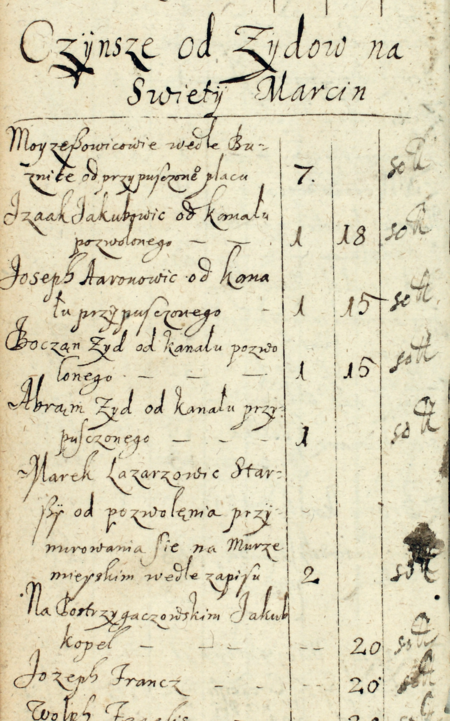 Czÿnsze od Zydow na
Swietÿ Marcin
Moyzeßowicowie wedle Bu-
znice od przypusczone placu 7.
Izaak Jakubowic od kanału
pozwolonego — — 1 18
Joseph Aaronowic od kana
łu przypusczonego - 1 15
Boczan Zyd od kanału pozwo
lonego — — — 1 15
Abram Zyd od kanału przy-
pusczonego — — — 1
Marek Lazarzowic Star-
ßÿ od pozwolęnia przy-
murowania sie na Murze
mieyskim wedle zapisu 2
Na Postrzygaczowskim Jakub
kopel — — — -- 20
Jozeph Francz — -- 20
Wolph